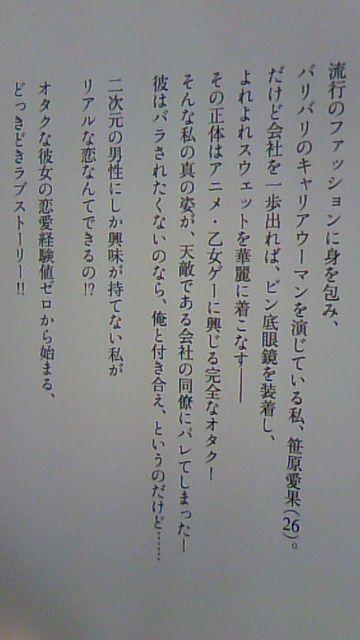 流行のファッションに身を包み、
バリバリのキャリアウーマンを演じている私、笹原愛果(26)。
だけど会社を一歩出れば、ビン底眼鏡を装着し、
よれよれスウェットを華麗に着こなす――
その正体はアニメ・乙女ゲーに興じる完全なオタク！
そんな私の真の姿が、天敵である会社の同僚にバレてしまった！
彼はバラされたくないのなら、俺と付き合え、というのだけど……
二次元の男性にしか興味が持てない私が
リアルな恋なんてできるの!?
オタクな彼女の恋愛経験値ゼロから始まる、
どっきどきラブストーリー!!